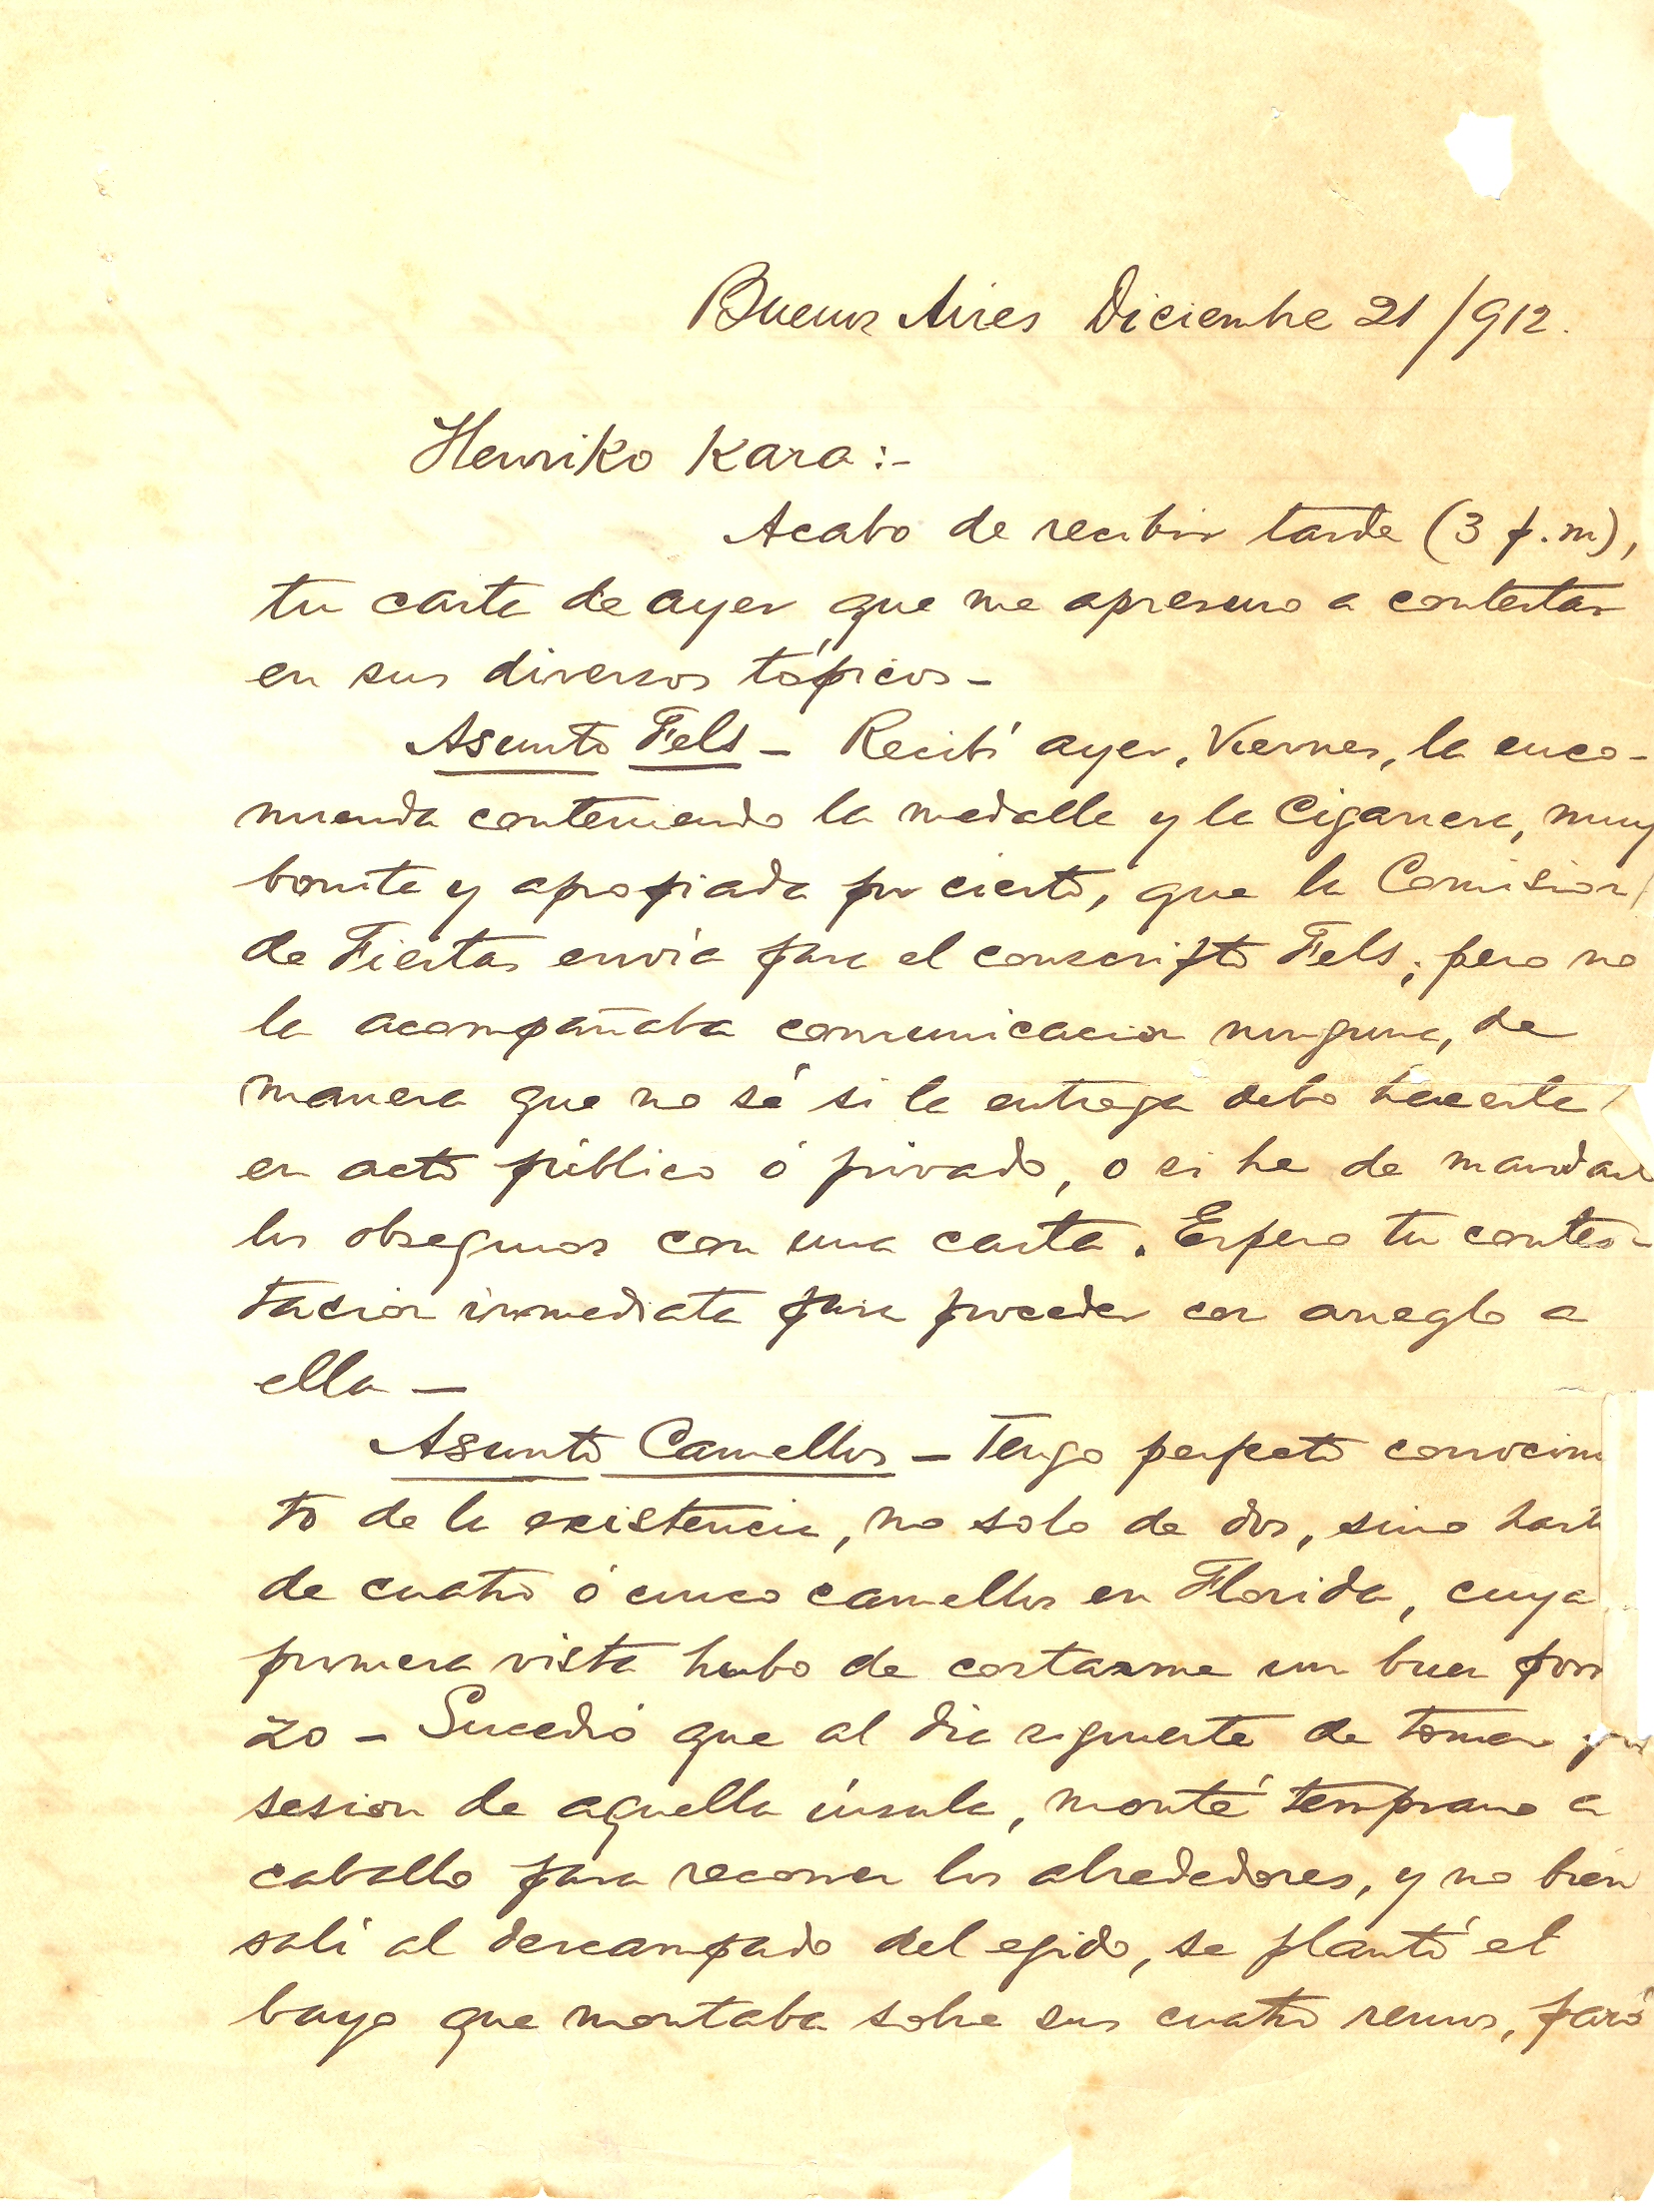 Buenos Aires Diciembre 21/912.
Henriko Kara:-
Acabo de recibir tarde (3 p.m),
tu carta de ayer que me apresuro a contestar
en sus diversos tópicos-
Asunto Fels - Recibí ayer, Viernes, la enco-
mienda conteniendo la medalla y la Cigarrera, muy
bonita y apropiada por cierto, que la Comision
de Fiestas envia para el conscripto Fels; pero no
la acompañaba comunicacion ninguna, de
manera que no sé si la entrega debo hacerla
en acto público ó privado, o si he de mandar
los obsequios con una carta. Espero tu contes-
tacion inmediata para proceder con arreglo a
ella -
Asunto Camellos - Tengo perfecto conocim
to de la existencia, no solo de dos, sino hast
de cuatro ó cinco camellos en Florida, cuya
primera vista hubo de costarme un buen porr
zo - Sucedió que al dia siguiente de tomar po
sesion de aquella ínsula, monté temprano a
caballo para recorrer los alrededores, y no bien
salí al descampado del egido, se plantó el
bayo que montaba sobre sus cuatro remos, paró